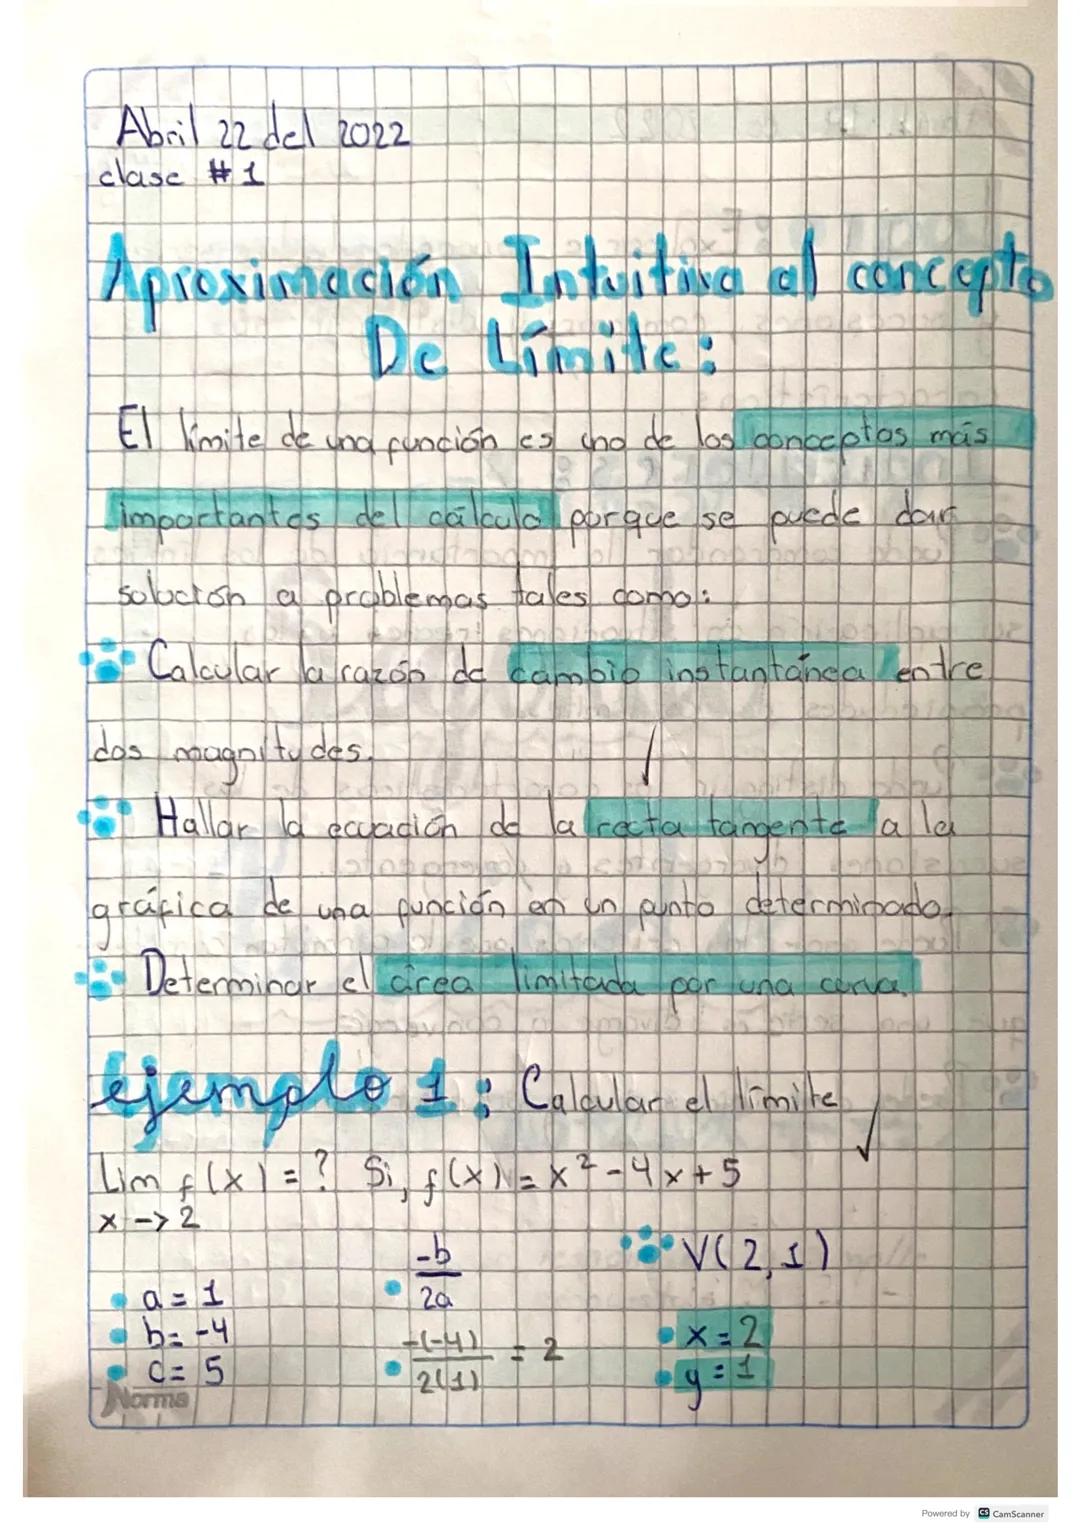 Abril 22 del 2022
clase #1
Aproximación Intuitiva al concepto
De Límite:
El límite de una función es uno de los conceptos más
importantes del cálculo porque se puede dar
solución a problemas tales como:
Calcular la razón de cambio instantánea entre
dos magnitudes.
Hallar la ecuación de la recta tangente a la
gráfica de una función en un punto determinado.
Determinar el área limitada por una curva.
ejemplo 1: Calcular el límite
Lim f(x) = ? Si, f(x) = x² - 4x + 5
x -> 2
-b
2a
V(2,1)
a = 1
b = -4
c = 5
-(-4)
2(1)
= 2
x = 2
y = 1
Norma
Powered by CS CamScanner